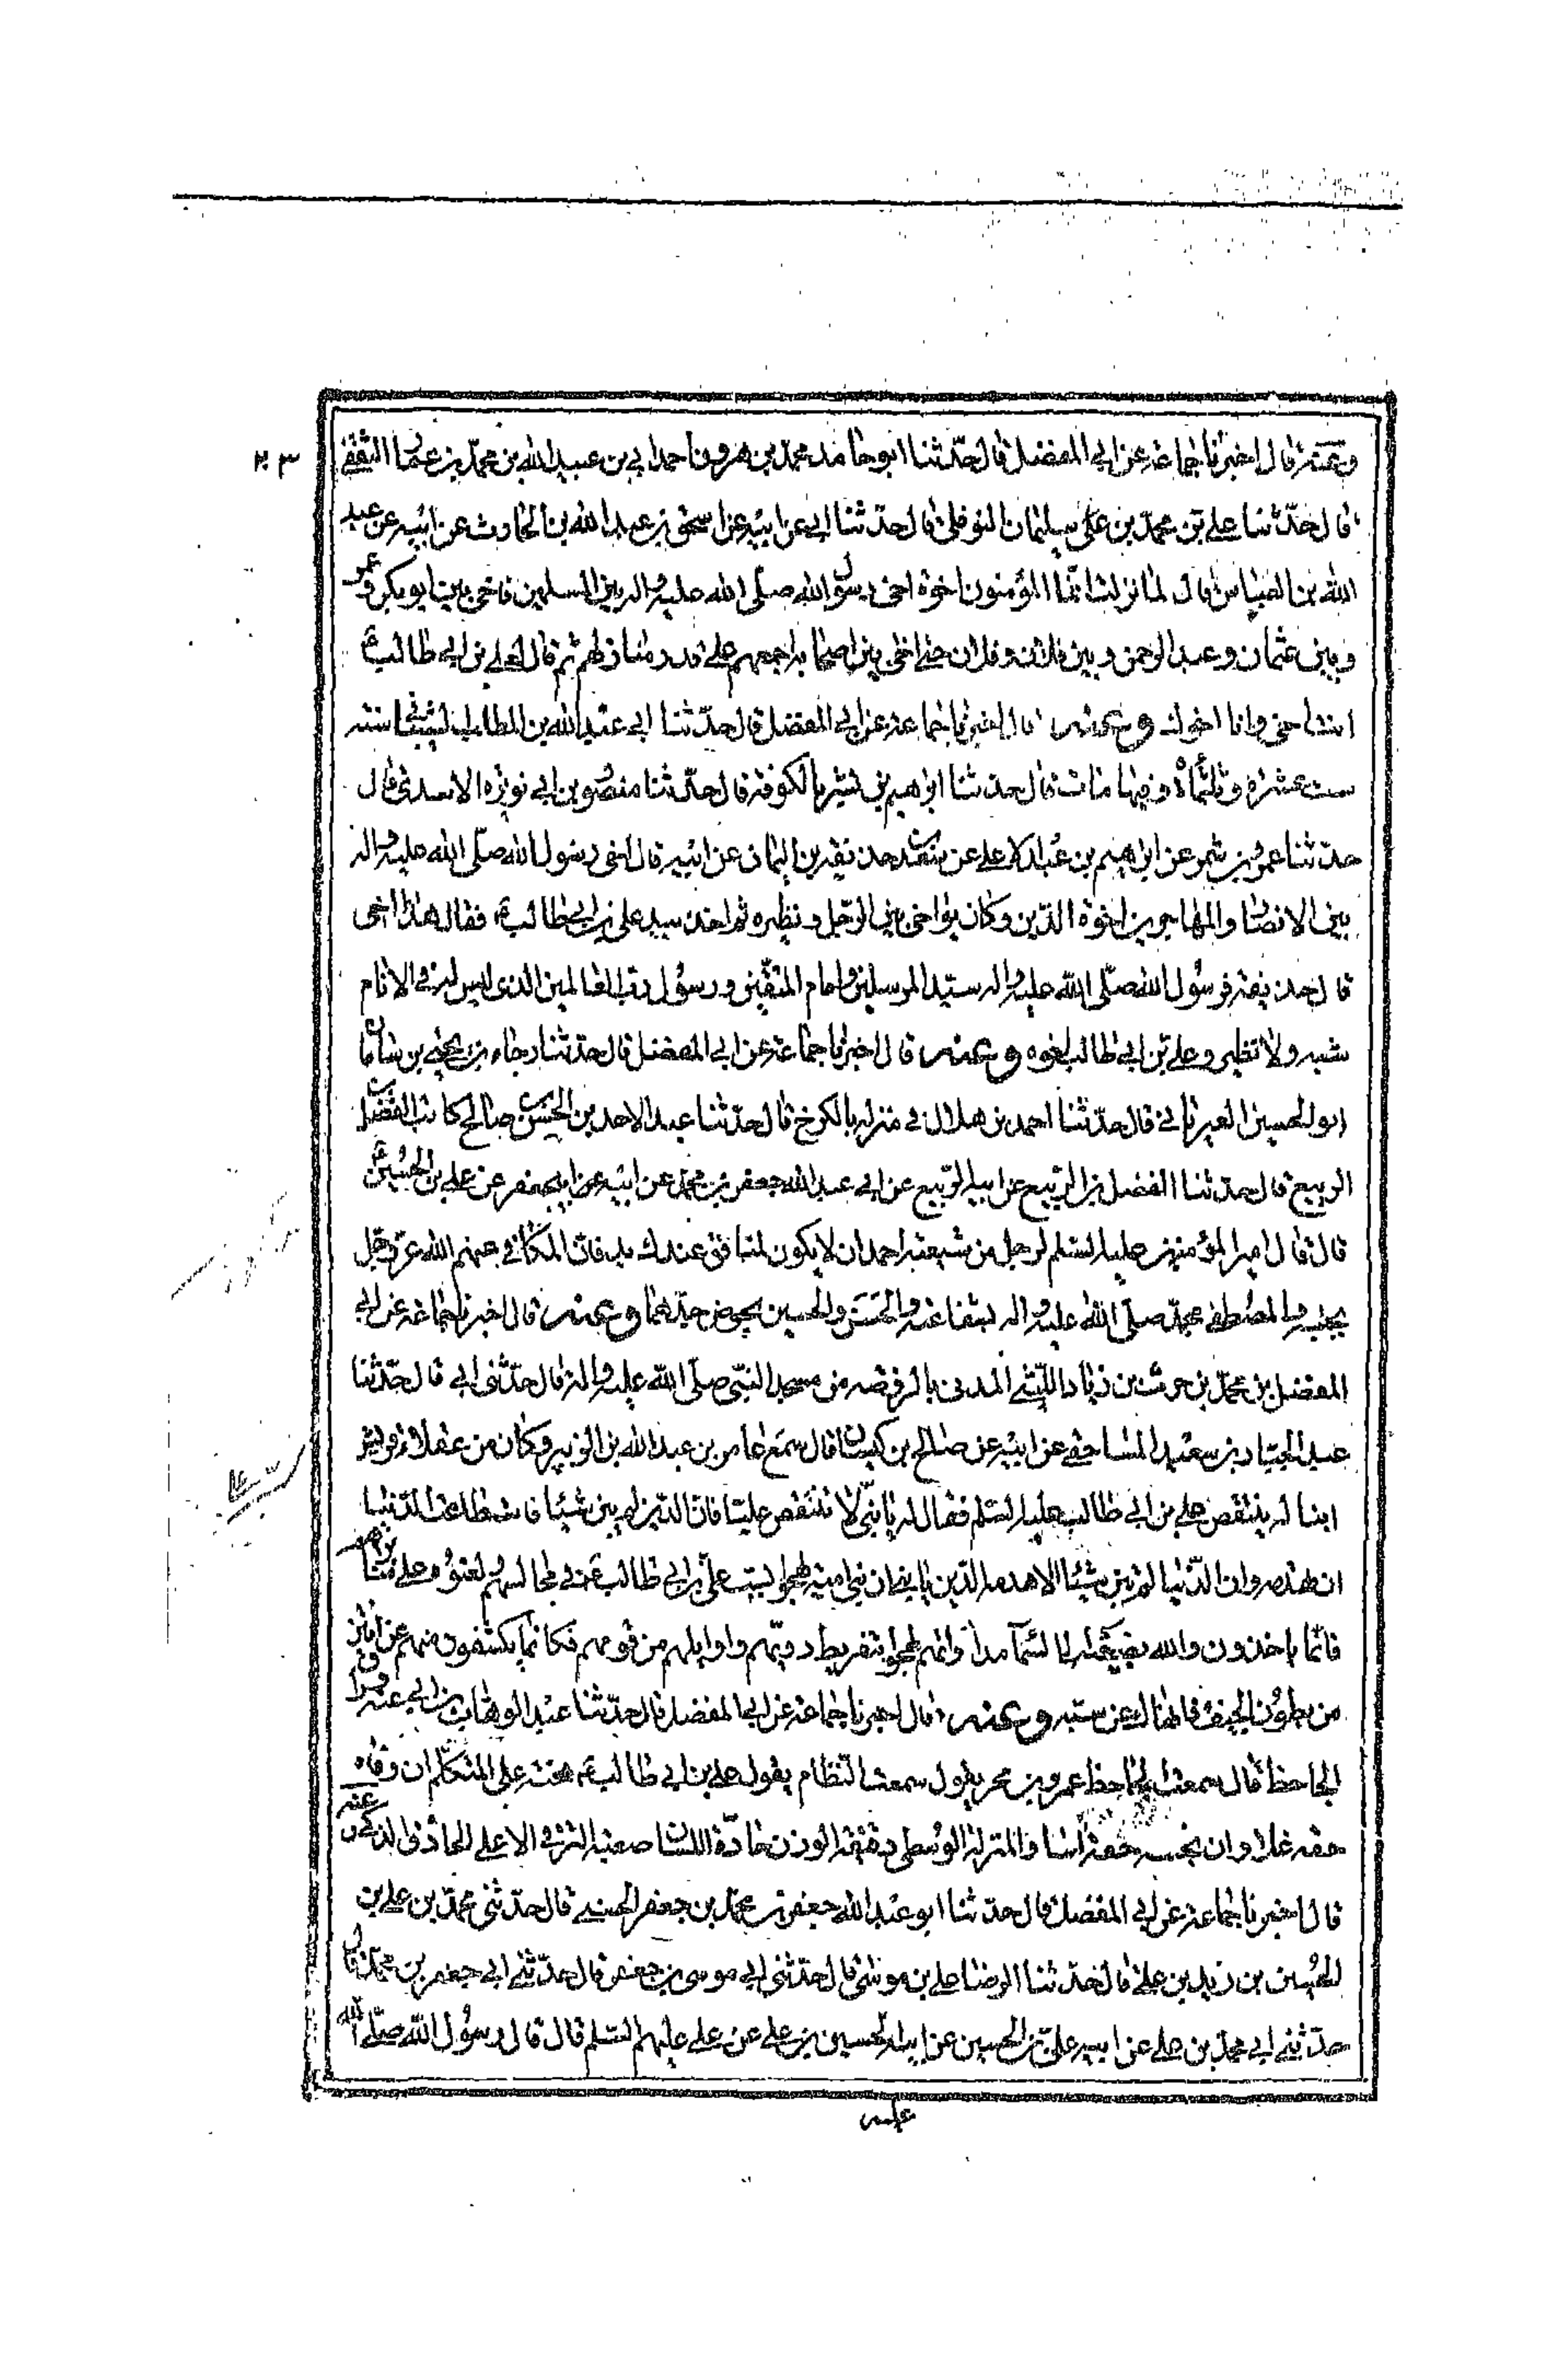 وعنه قال اخبرنا جماعة عن ابي المفضل قال حدّثنا ابو حامد محمد بن هرون احمد ابي بن عبيد الله بن محمد بن عمار الثقفي
٢٣
قال حدّثنا علي بن محمد بن علي سليمان النوفلي قال حدّثنا ابي عن ابيه عن اسحق بن عبد الله بن الحارث عن ابيه عن عبد
الله بن العباس قال لما نزلت انّما المؤمنون اخوة اخى رسول الله صلّى الله عليه واله بين المسلمين فاخى بين ابوبكر وعمر
وبين عثمان وعبد الرحمن وبين فلان وفلان حتى اخى بين اصحابه اجمعهم على قدر منازلهم ثم قال لعلي بن ابي طالب ع
انت اخي وانا اخوك وعنه قال اخبرنا جماعة عن ابي المفضل قال حدّثنا ابي عبد الله بن المطلب الشيباني سنة
ست عشرة وثلثمأة وفيها مات قال حدثنا ابراهيم بن بشير بالكوفة قال حدّثنا منصور بن ابي نويره الاسدى قال
حدّثنا عمرو بن شمر عن ابراهيم بن عبد الاعلى عن سعد حذيفة بن اليمان عن ابيه قال اخى رسول الله صلّى الله عليه واله
بين الانصار والمهاجرين اخوة الدّين وكان يؤاخى بين الرّجل ونظيره ثم اخذ بيد علي بن ابي طالب ع فقال هذا اخى
قال حذيفة فرسول الله صلّى الله عليه واله سيّد المرسلين وامام المتّقين ورسول ربّ العالمين الذى ليس له فى الانام
شبه ولا نظير وعلي بن ابي طالب اخوه وعنه قال اخبرنا جماعة عن ابي المفضل قال حدثنا رجاء بن يحيى بن سامان
ابو الحسين العبرتائي قال حدّثنا احمد بن هلال في منزله بالكرخ قال حدّثنا عبد الاحد بن الحسن بن صالح كاتب الفضل بن
الربيع قال حدثنا الفضل بن الربيع عن ابيه الربيع عن ابي عبد الله جعفر بن محمد عن ابيه عن ابي جعفر عن علي بن الحسين ع
قال قال امير المؤمنين عليه السلم لرجل من شيعته احمد ان لا يكون لمنافق عندك يد فان المكافي عنهم الله عز وجل
بجنته والمصطفى محمد صلّى الله عليه واله بشفاعته والحسن والحسين بحوض جدّهما وعنه قال اخبرنا جماعة عن ابي
المفضل بن محمد بن حرث بن زياد الليثي المدنى بالروضه من مسجد النبّى صلّى الله عليه واله قال حدّثنى ابي قال حدّثنا
عبد الجبار بن سعيد المساحقي عن ابيه عن صالح بن كيسان قال سمع عامر بن عبد الله بن الزبير وكان من عقلاء قريش
ابنا له ينتقص علي بن ابي طالب عليه السّلم فقال له يا بنّى لا تنتقص عليّا فان الدّين لم يبن شيئا فاستطاعت الدّنيا
ان تهدمه وان الدّنيا لم تبن شيئا الا هدمه الدّين يا بني ان بني امية لهجوا بسب علي بن ابي طالب ع في مجالسهم لعنوه على منابرهم
فانّما ياخذون والله بضبعيه الى السّماء مدا وانهم لهجوا بتقريط ذويهم واوايلهم من قومهم فكانّما يكشفون منهم عن انتن
من بطون الجيف فانهاك عن سبّه وعنه قال اخبرنا جماعة عن ابي المفضل قال حدّثنا عبد الوهاب بن ابي حيه ورا
الجاحظ قال سمعت الجاحظ عمرو بن بحر يقول سمعت النّظام يقول علي بن ابي طالب ع محنة على المتكلّم ان وفاه
حقه غلا وان بخسه حقه اسا والمنزلة الوسطى دقيقة الوزن حادّة اللسان صعبة الترقى الا على الحاذق الذكى وعنه
قال اخبرنا جماعة عن ابي المفضل قال حدثنا ابو عبد الله جعفر بن محمد بن جعفر الحسني قال حدّثنى محمد بن علي بن
الحسين بن زيد بن علي قال حدّثنا الرضا علي بن موسى قال حدّثنى ابي موسى بن جعفر قال حدّثني ابي جعفر بن محمد قال
حدّثني ابي محمد بن علي عن ابيه علي بن الحسين عن ابيه الحسين بن علي عن علي عليهم السّلم قال قال رسول الله صلّى الله
عليه